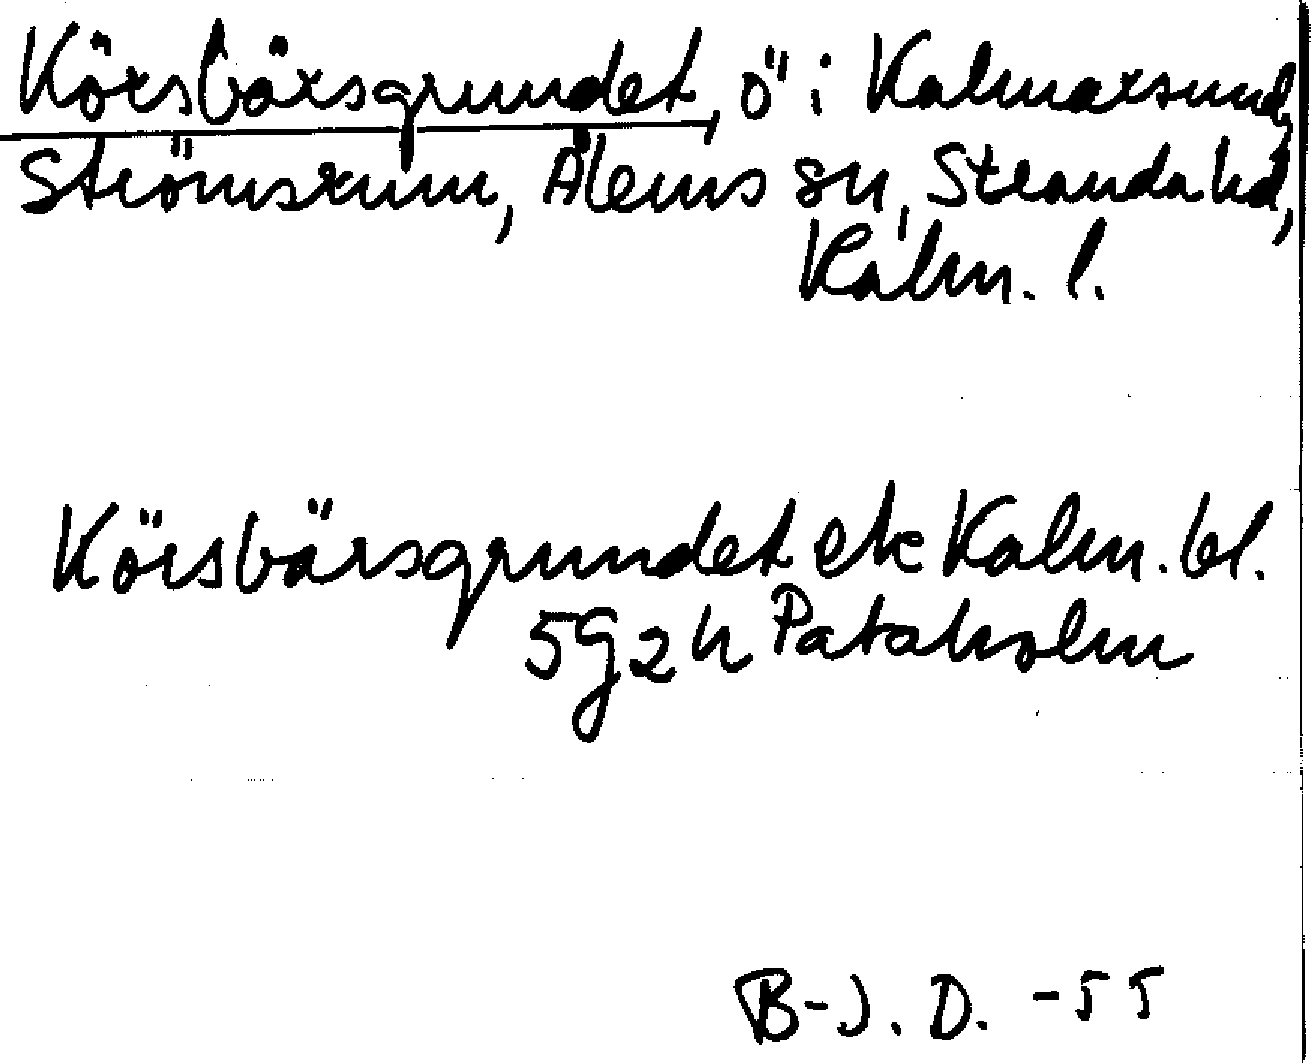 Körsbärsgrundet, ö i Kalmarsund,
Strömsrum, Ålems sn, Stranda hd,
Kalm. l.
Körsbärsgrundet ek Kalm. bl.
5g2h Pataholm
B-J. D. -55